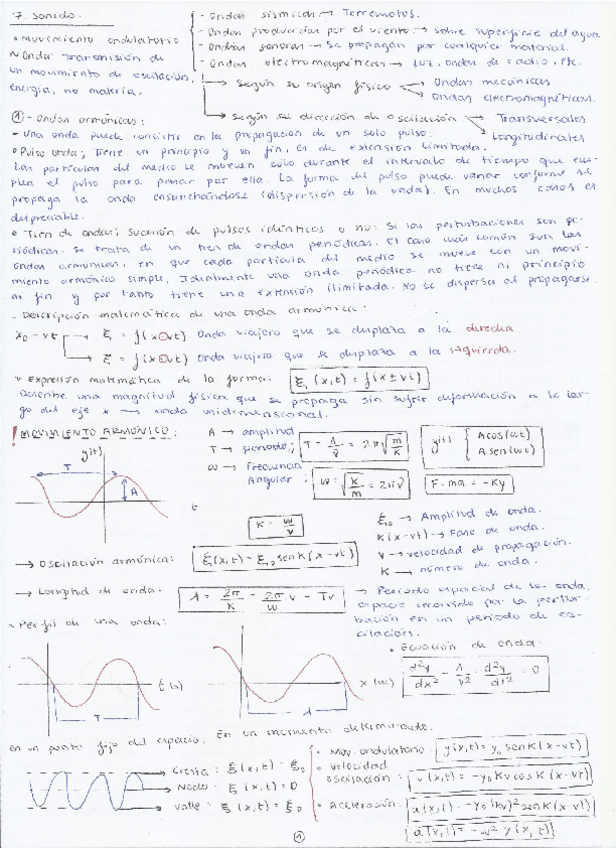 7. Sonido.
• Movimiento ondulatorio
~ Onda: Transmisión de
un movimiento de oscilación,
energía, no materia.
- Ondas sísmicas → Terremotos.
- Ondas producidas por el viento → sobre superficie del agua
- Ondas sonoras → Se propagan por cualquier material.
- Ondas electromagnéticas → Luz, ondas de radio, etc.
→ Según su origen físico → Ondas mecánicas
Ondas electromagnéticas.
→ Según su dirección de oscilación → Transversales
Longitudinales
① - Ondas armónicas:
- Una onda puede consistir en la propagación de un solo pulso:
• Pulso onda: Tiene un principio y un fin, es de extensión limitada.
Las partículas del medio se mueven sólo durante el intervalo de tiempo que em-
plea el pulso para pasar por ella. La forma del pulso puede variar conforme se
propaga la onda ensanchándose (dispersión de la onda). En muchos casos es
despreciable.
• Tren de ondas: Sucesión de pulsos idénticos o no: Si las perturbaciones son pe-
riódicas. Se trata de un tren de ondas periódicas. El caso más común son las
ondas armónicas, en que cada partícula del medio se mueve con un movi-
miento armónico simple. Idealmente una onda periódica no tiene ni principio
ni fin y por tanto tiene una extensión ilimitada. No se dispersa al propagarse.
- Descripción matemática de una onda armónica:
x₀ - vt → ξ = f(x-vt) Onda viajera que se desplaza a la derecha
→ ξ = f(x+vt) Onda viajera que se desplaza a la izquierda.
• Expresión matemática de la forma: ξ (x,t) = f(x ± vt)
Describe una magnitud física que se propaga sin sufrir deformación a lo lar-
go del eje x → onda unidimensional.
! MOVIMIENTO ARMÓNICO:
A → amplitud
T → periodo; T = 1/ν = 2π√(m/k)
ω → Frecuencia
Angular; ω = √(k/m) = 2πν
y(t) { A cos(ωt)
A sen(ωt)
F = ma = -Ky
y(t)
T
A
t
K = ω/v
→ Oscilación armónica: ξ(x,t) = ξ₀ sen K(x-vt)
ξ₀ → Amplitud de onda.
K(x-vt) → Fase de onda.
v → velocidad de propagación.
K → número de onda.
→ Longitud de onda: λ = 2π/K = 2π/ω v = Tv
→ Periodo espacial de la onda,
espacio recorrido por la pertur-
bación en un periodo de os-
cilación.
• Perfil de una onda:
• Ecuación de onda:
d²y/dx² - 1/v² · d²y/dt² = 0
t (s)
T
x (m)
λ
En un punto fijo del espacio. En un momento determinado.
Cresta: ξ(x,t) = ξ₀
Nodo: ξ(x,t) = 0
Valle: ξ(x,t) = ξ₀
• Mov. ondulatorio: y(x,t) = y₀ sen K(x-vt)
• Velocidad
oscilación: v(x,t) = -y₀Kv cos K(x-vt)
• Aceleración: a(x,t) = -y₀(kv)² sen K(x-vt)
a(x,t) = -ω² y(x,t)
①